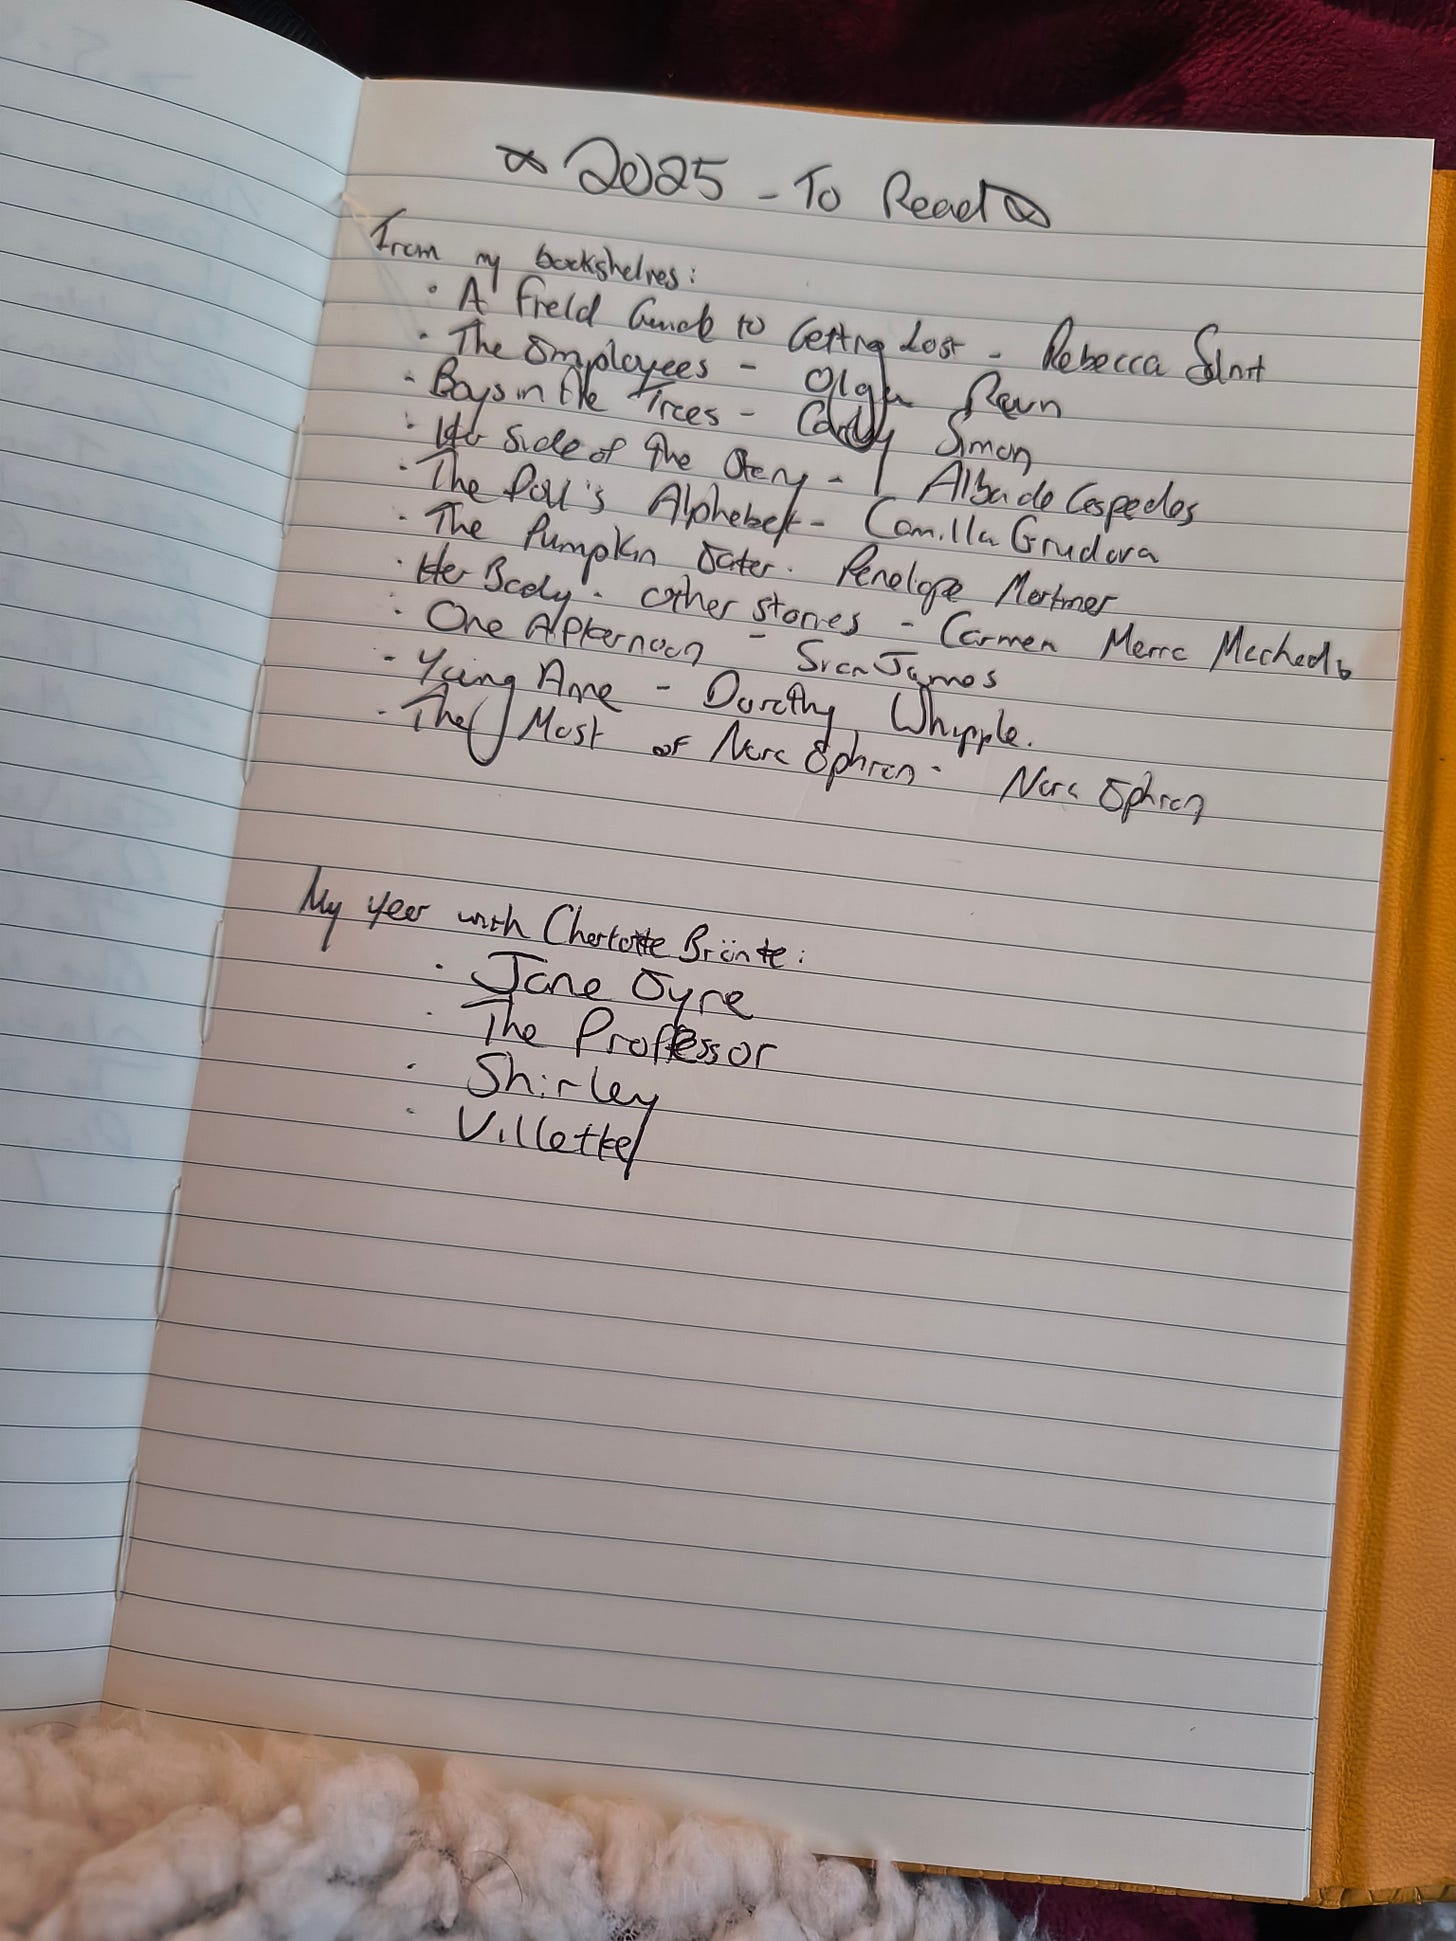 2025 - To Read
From my bookshelves:
· A Field Guide to Getting Lost - Rebecca Solnit
· The Employees - Olga Ravn
· Boys in the Trees - Carly Simon
· Her Side of the Story - Alba de Cespedes
· The Doll's Alphabet - Camilla Grudova
· The Pumpkin Eater. Penelope Mortimer
· Her Body · Other stories - Carmen Maria Machado
· One Afternoon - Sian James
- Young Anne - Dorothy Whipple.
· The Most of Nora Ephron - Nora Ephron
My year with Charlotte Brönte:
· Jane Eyre
· The Professor
· Shirley
· Villette